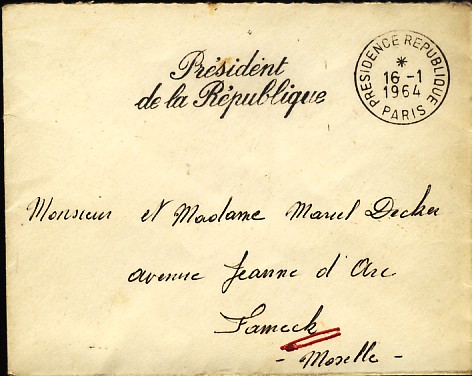 Président
de la République
PRESIDENCE REPUBLIQUE
*
16 -1
1964
PARIS
Monsieur et Madame Marcel Decker
avenue Jeanne d'Arc
Fameck
- Moselle -